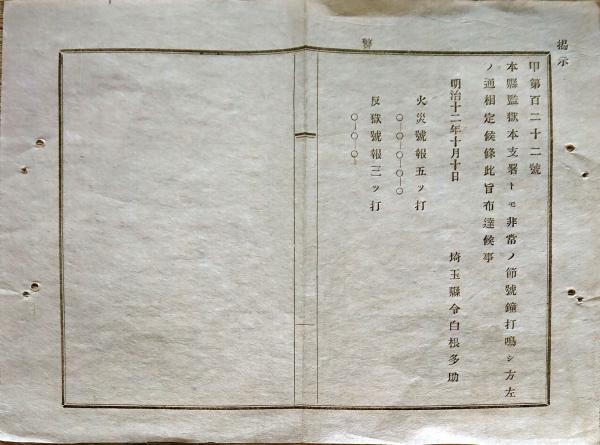 揭示
警
甲第百二十二號
本縣監獄本支署トモ非常ノ節號鐘打鳴シ方左
ノ通相定候條此旨布達候事
明治十二年十月十日 埼玉縣令白根多助
火災號報五ツ打
○―○―○―○―○
反獄號報三ツ打
○―○―○